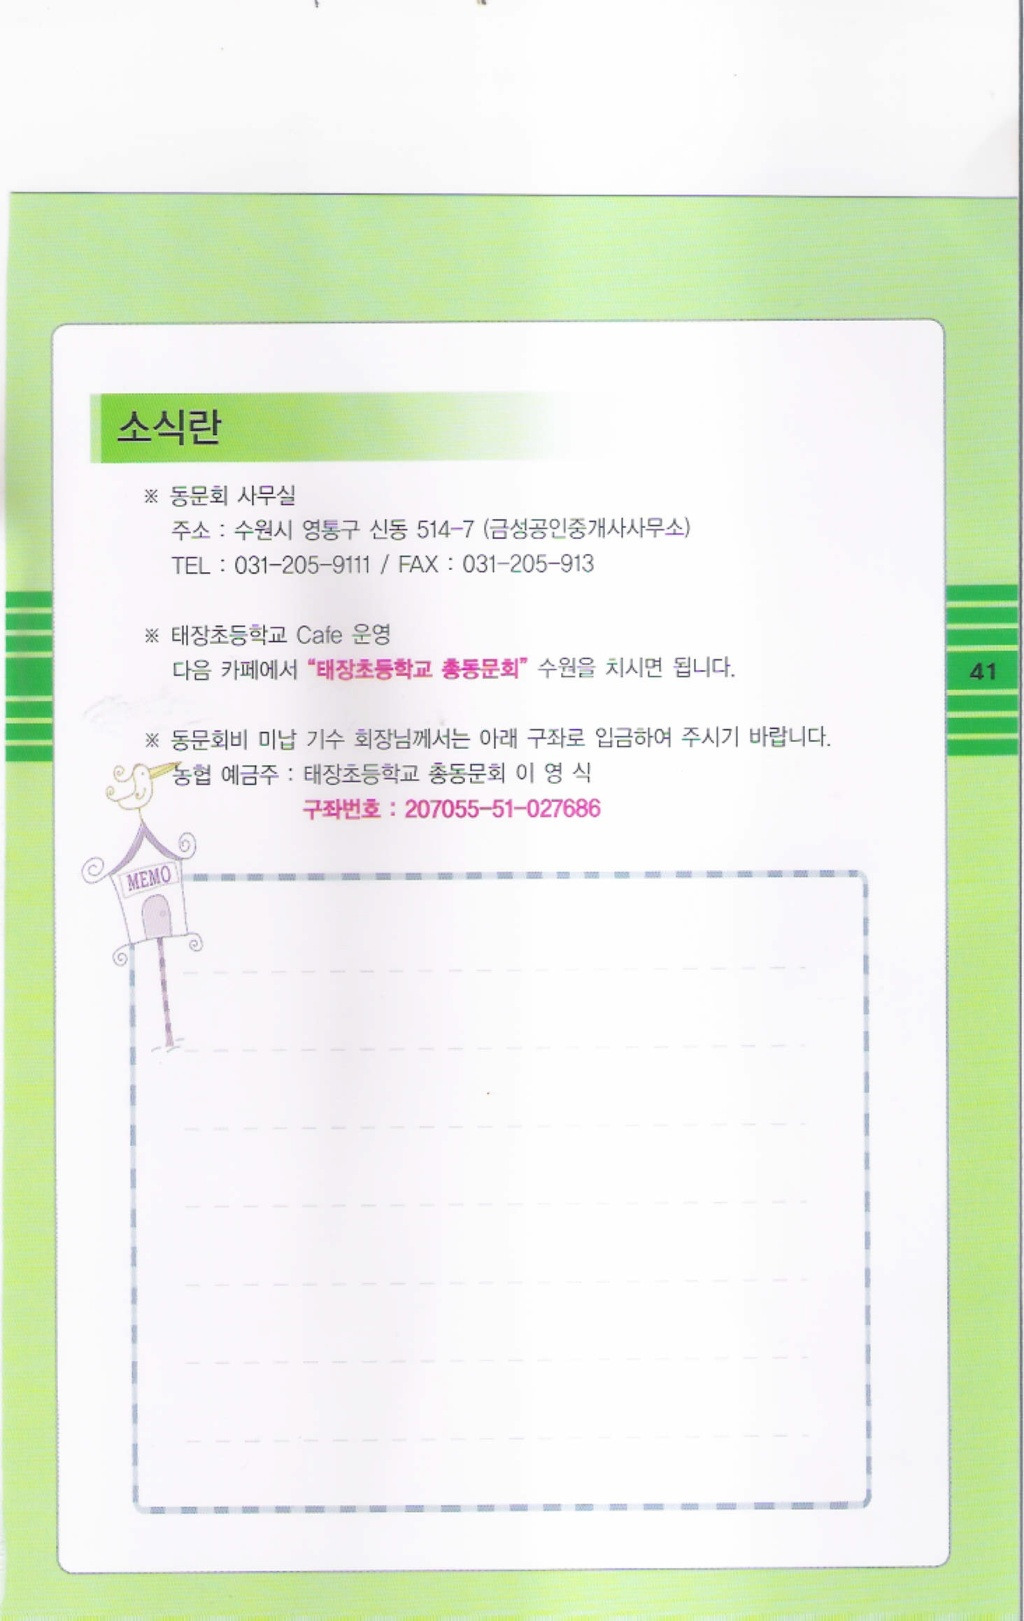 소식란
※ 동문회 사무실
주소 : 수원시 영통구 신동 514-7 (금성공인중개사사무소)
TEL : 031-205-9111 / FAX : 031-205-913
※ 태장초등학교 Cafe 운영
다음 카페에서 “태장초등학교 총동문회” 수원을 치시면 됩니다.
41
※ 동문회비 미납 기수 회장님께서는 아래 구좌로 입금하여 주시기 바랍니다.
농협 예금주 : 태장초등학교 총동문회 이 영 식
구좌번호 : 207055-51-027686
MEMO